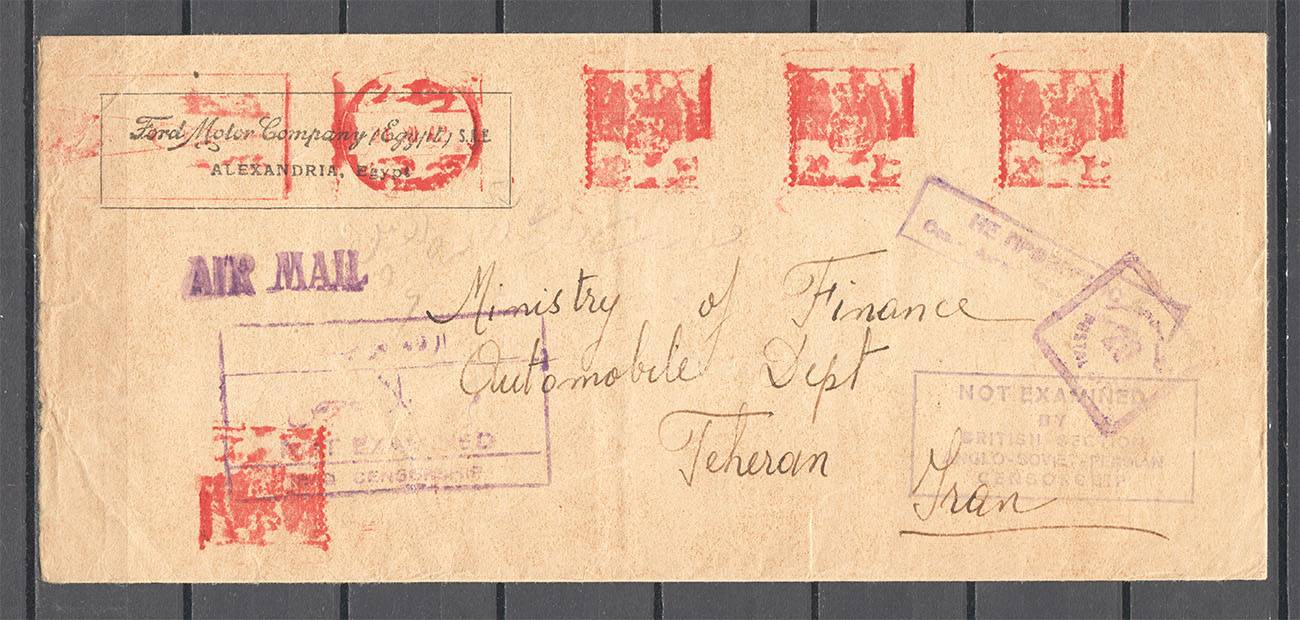 Ford Motor Company (Egypt) S.A.E.
ALEXANDRIA, Egypt
AIR MAIL
Ministry of Finance
Automobile Dept
Teheran
Iran
НЕ
POSTAL
NOT EXAMINED
CENSORSHIP
NOT EXAMINED
BY
BRITISH SECTION
ANGLO-SOVIET-PERSIAN
CENSORSHIP